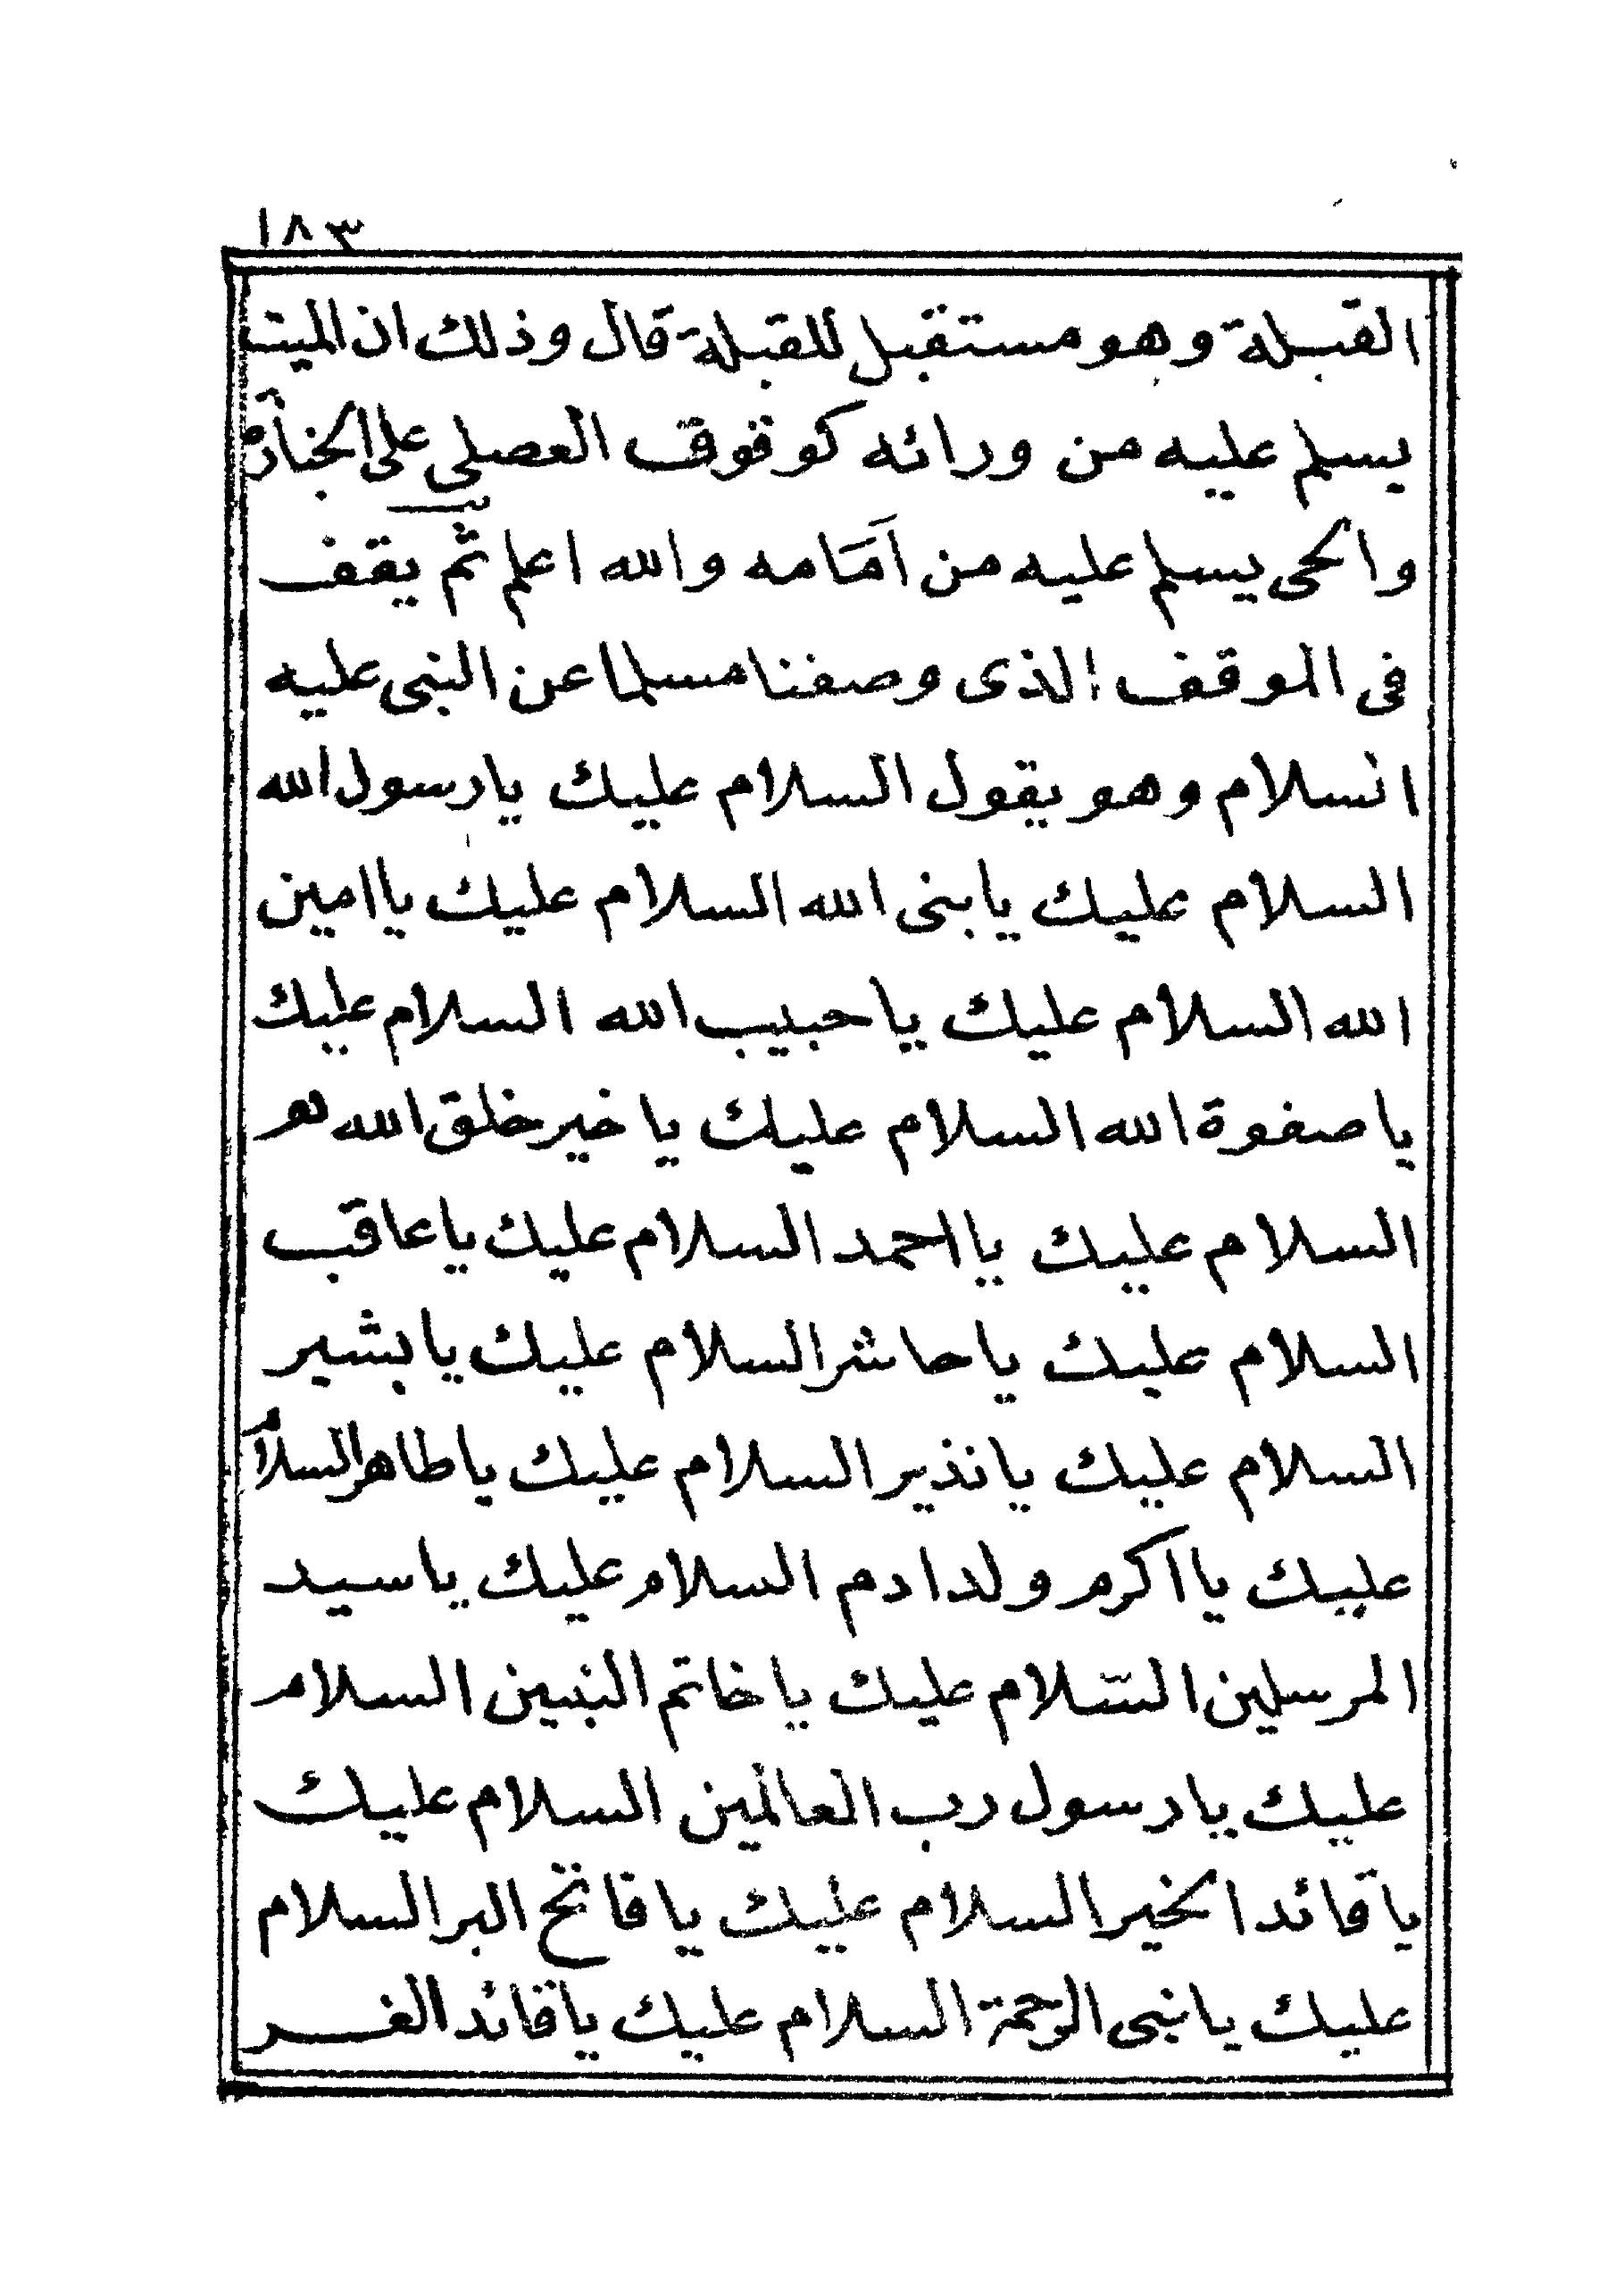 ١٨٣
القبلة وهو مستقبل للقبلة قال وذلك ان الميت
يسلم عليه من ورائه كوقوف المصلي على الجنازة
والحى يسلم عليه من اَمَامه والله اعلم ثم يقف
فى الموقف الذى وصفنا مسلما عن النبى عليه
السلام وهو يقول السلام عليك يا رسول الله
السلام عليك يا بنى الله السلام عليك يا امين
الله السلام عليك يا حبيب الله السلام عليك
يا صفوة الله السلام عليك يا خير خلق الله هو
السلام عليك يا احمد السلام عليك يا عاقب
السلام عليك يا حاشر السلام عليك يا بشير
السلام عليك يا نذير السلام عليك يا طاهر السلام
عليك يا اكرم ولد ادم السلام عليك يا سيد
المرسلين السلام عليك يا خاتم النبيين السلام
عليك يا رسول رب العالمين السلام عليك
يا قائد الخير السلام عليك يا فاتح البر السلام
عليك يا نبى الرحمة السلام عليك يا قائد الغر